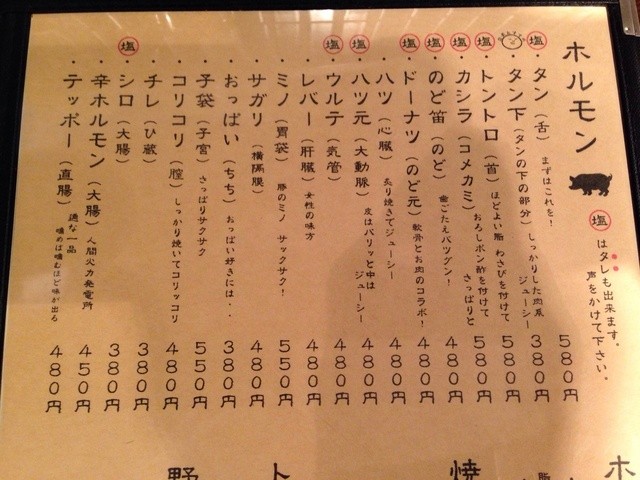 ホルモン
塩 はタレも出来ます。
声をかけて下さい。
塩 ・タン（舌） まずはこれを！ 580円
・タン下（タンの下の部分） しっかりした肉系 ジューシー 380円
塩 ・トントロ（首） ほどよい脂 わさびを付けて 580円
塩 ・カシラ（コメカミ） おろしポン酢を付けて さっぱりと 580円
塩 ・のど笛（のど） 歯ごたえバツグン！ 480円
塩 ・ドーナツ（のど元） 軟骨とお肉のコラボ！ 480円
・ハツ（心臓） 炙り焼きでジューシー 480円
塩 ・ハツ元（大動脈） 皮はパリッと中は ジューシー 480円
塩 ・ウルテ（気管） 480円
・レバー（肝臓） 女性の味方 480円
・ミノ（胃袋） 豚のミノ サックサク！ 550円
・サガリ（横隔膜） 480円
・おっぱい（ちち） おっぱい好きには・・ 380円
・子袋（子宮） さっぱりサクサク 550円
・コリコリ（膣） しっかり焼いてコリッコリ 480円
・チレ（ひ蔵） 380円
塩 ・シロ（大腸） 380円
・辛ホルモン（大腸） 人間火力発電所 450円
・テッポー（直腸） 通な一品 噛めば噛むほど味が出る 480円
ホ
焼
ト
野